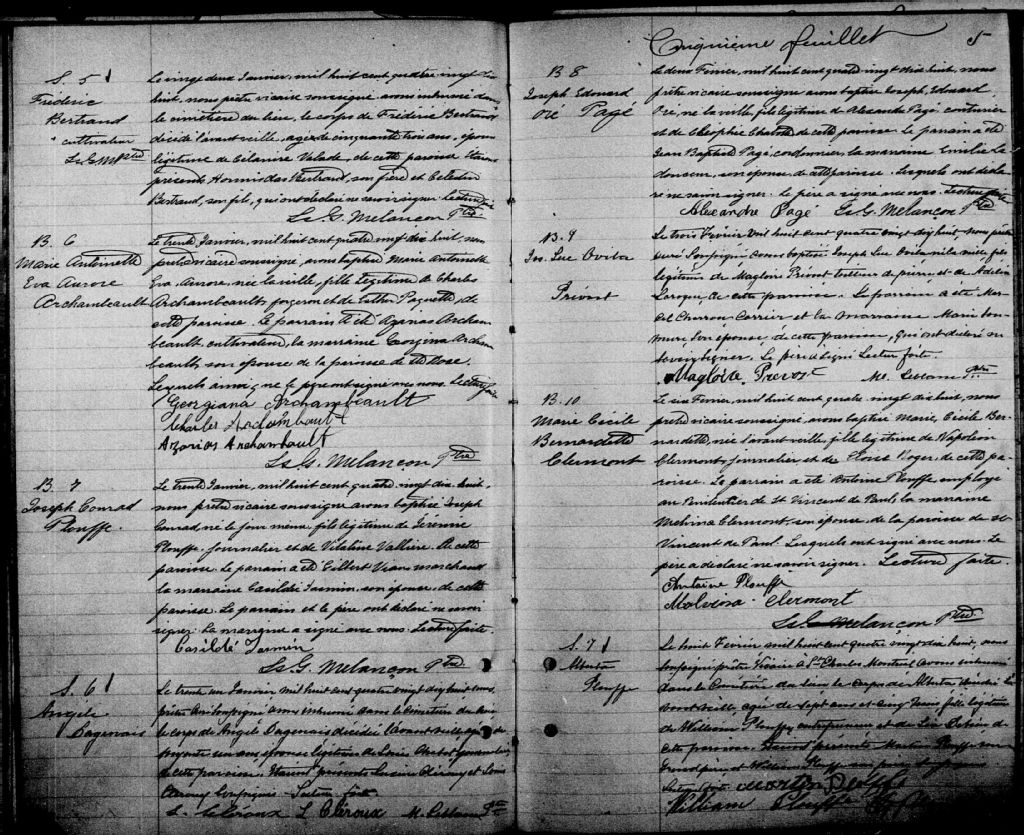 S. 5
Frédéric
Bertrand
cultivateur
Ls G M Ptre
Le vingt deux Janvier, mil huit cent quatre vingt dix
huit, nous prêtre vicaire soussigné avons inhumé dans
le cimetière du lieu, le corps de Frédéric Bertrand
décédé l'avant veille, agé de cinquante trois ans, époux
légitime de Célanire Valade, de cette paroisse. Etaient
présents, Hormisdas Bertrand, son frère et Célestin
Bertrand, son fils, qui ont déclaré ne savoir signer. Lecture faite
Ls. G. Melançon Ptre
B. 6
Marie Antoinette
Eva Aurore
Archambeault
Le trente Janvier, mil huit cent quatre vingt dix huit, nous
prêtre vicaire soussigné, avons baptisé Marie Antoinette
Eva Aurore, née la veille, fille légitime de Charles
Archambeault, forgeron et de Esther Paquette, de
cette paroisse. Le parrain a été Azarias Archam
beault, cultivateur, la marraine Georgina Archam
beault, son épouse de la paroisse de Ste Rose.
Lesquels ainsi que le père ont signé avec nous. Lecture faite
Georgiana Archambeault
Charles Archambault
Azarias Archambault
Ls. G. Melançon Ptre
B. 7
Joseph Conrad
Plouffe.
Le trente Janvier, mil huit cent quatre vingt dix huit,
nous prêtre vicaire soussigné avons baptisé Joseph
Conrad, né le jour même, fils légitime de Jérémie
Plouffe, journalier et de Vitaline Vallière. De cette
paroisse. Le parrain a été Gilbert marchand
la marraine Casildé Jasmin, son épouse, de cette
paroisse. Le parrain et le père ont déclaré ne savoir
signer. La marraine a signé avec nous. Lecture faite.
Casildé Jasmin
Ls. G. Melançon Ptre
S. 6
Angèle
Dagenais
Le trente un Janvier, mil huit cent quatre vingt dix huit nous
prêtre soussigné avons inhumé dans le cimetière du lieu
le corps de Angèle Dagenais décédée l'avant veille agée de
soixante ans épouse légitime de Louis
de cette paroisse. Etaient présents et Louis
soussignés. Lecture faite
L. Cléroux M. Leblanc Ptre
Cinquième feuillet 5
B 8
Joseph Edouard
Oré Pagé
Le deux Février, mil huit cent quatre vingt dix huit, nous
prêtre vicaire soussigné avons baptisé Joseph, Edouard
Oré, né la veille, fils légitime de Alexandre Pagé, cordonnier
et de Théophie de cette paroisse. Le parrain a été
Jean Baptiste Pagé, cordonnier, la marraine Emilie La
douceur, son épouse de cette paroisse. Lesquels ont décla
ré ne savoir signer. Le père a signé avec nous. Lecture faite
Alexandre Pagé Ls G. Melançon Ptre
B. 9
Jos. Luc Ovila
Prévost
Le trois Février Mil huit cent quatre vingt dix huit Nous prêtre
curé Soussigné avons baptisé Joseph Luc Ovila né la veille, fils
légitime de Magloire Prévost tailleur de pierre et de Adelina
Laroque de cette paroisse. Le parrain a été Mar
cel Charron Carrier et la marraine Marie
son épouse de cette paroisse, Qui ont déclaré ne
savoir signer. Le père a signé Lecture faite.
Magloire Prevost M. Leblanc Ptre
B. 10
Marie Cécile
Bernardette
Clermont
Le six Février, mil huit cent quatre vingt dix huit, nous
prêtre vicaire soussigné, avons baptisé Marie, Cécile Ber
nardette, née l'avant veille, fille légitime de Napoléon
Clermont, journalier et de Roger, de cette pa
roisse. Le parrain a été Antoine Plouffe, employé
au Pénitentier de St Vincent de Paul, la marraine
Melvina Clermont, son épouse, de la paroisse de St
Vincent de Paul. Lesquels ont signé avec nous. Le
père a déclaré ne savoir signer. Lecture faite.
Antoine Plouffe
Malvina Clermont
Ls. G. Melançon Ptre
S. 7
Alberta
Plouffe
Le huit Février mil huit cent quatre vingt dix huit, nous
soussigné prêtre Vicaire à St Charles Montréal avons inhumé
dans le Cimetière du lieu le corps de Alberta décédée l'a
vant veille, agée de sept ans et cinq mois fille légitime
de William Plouffe entrepreneur et de
cette paroisse. Etaient présents Martin Plouffe son
Grand père, et William Plouffe son père soussignés
Lecture faite Martin Plouffe
William Plouffe